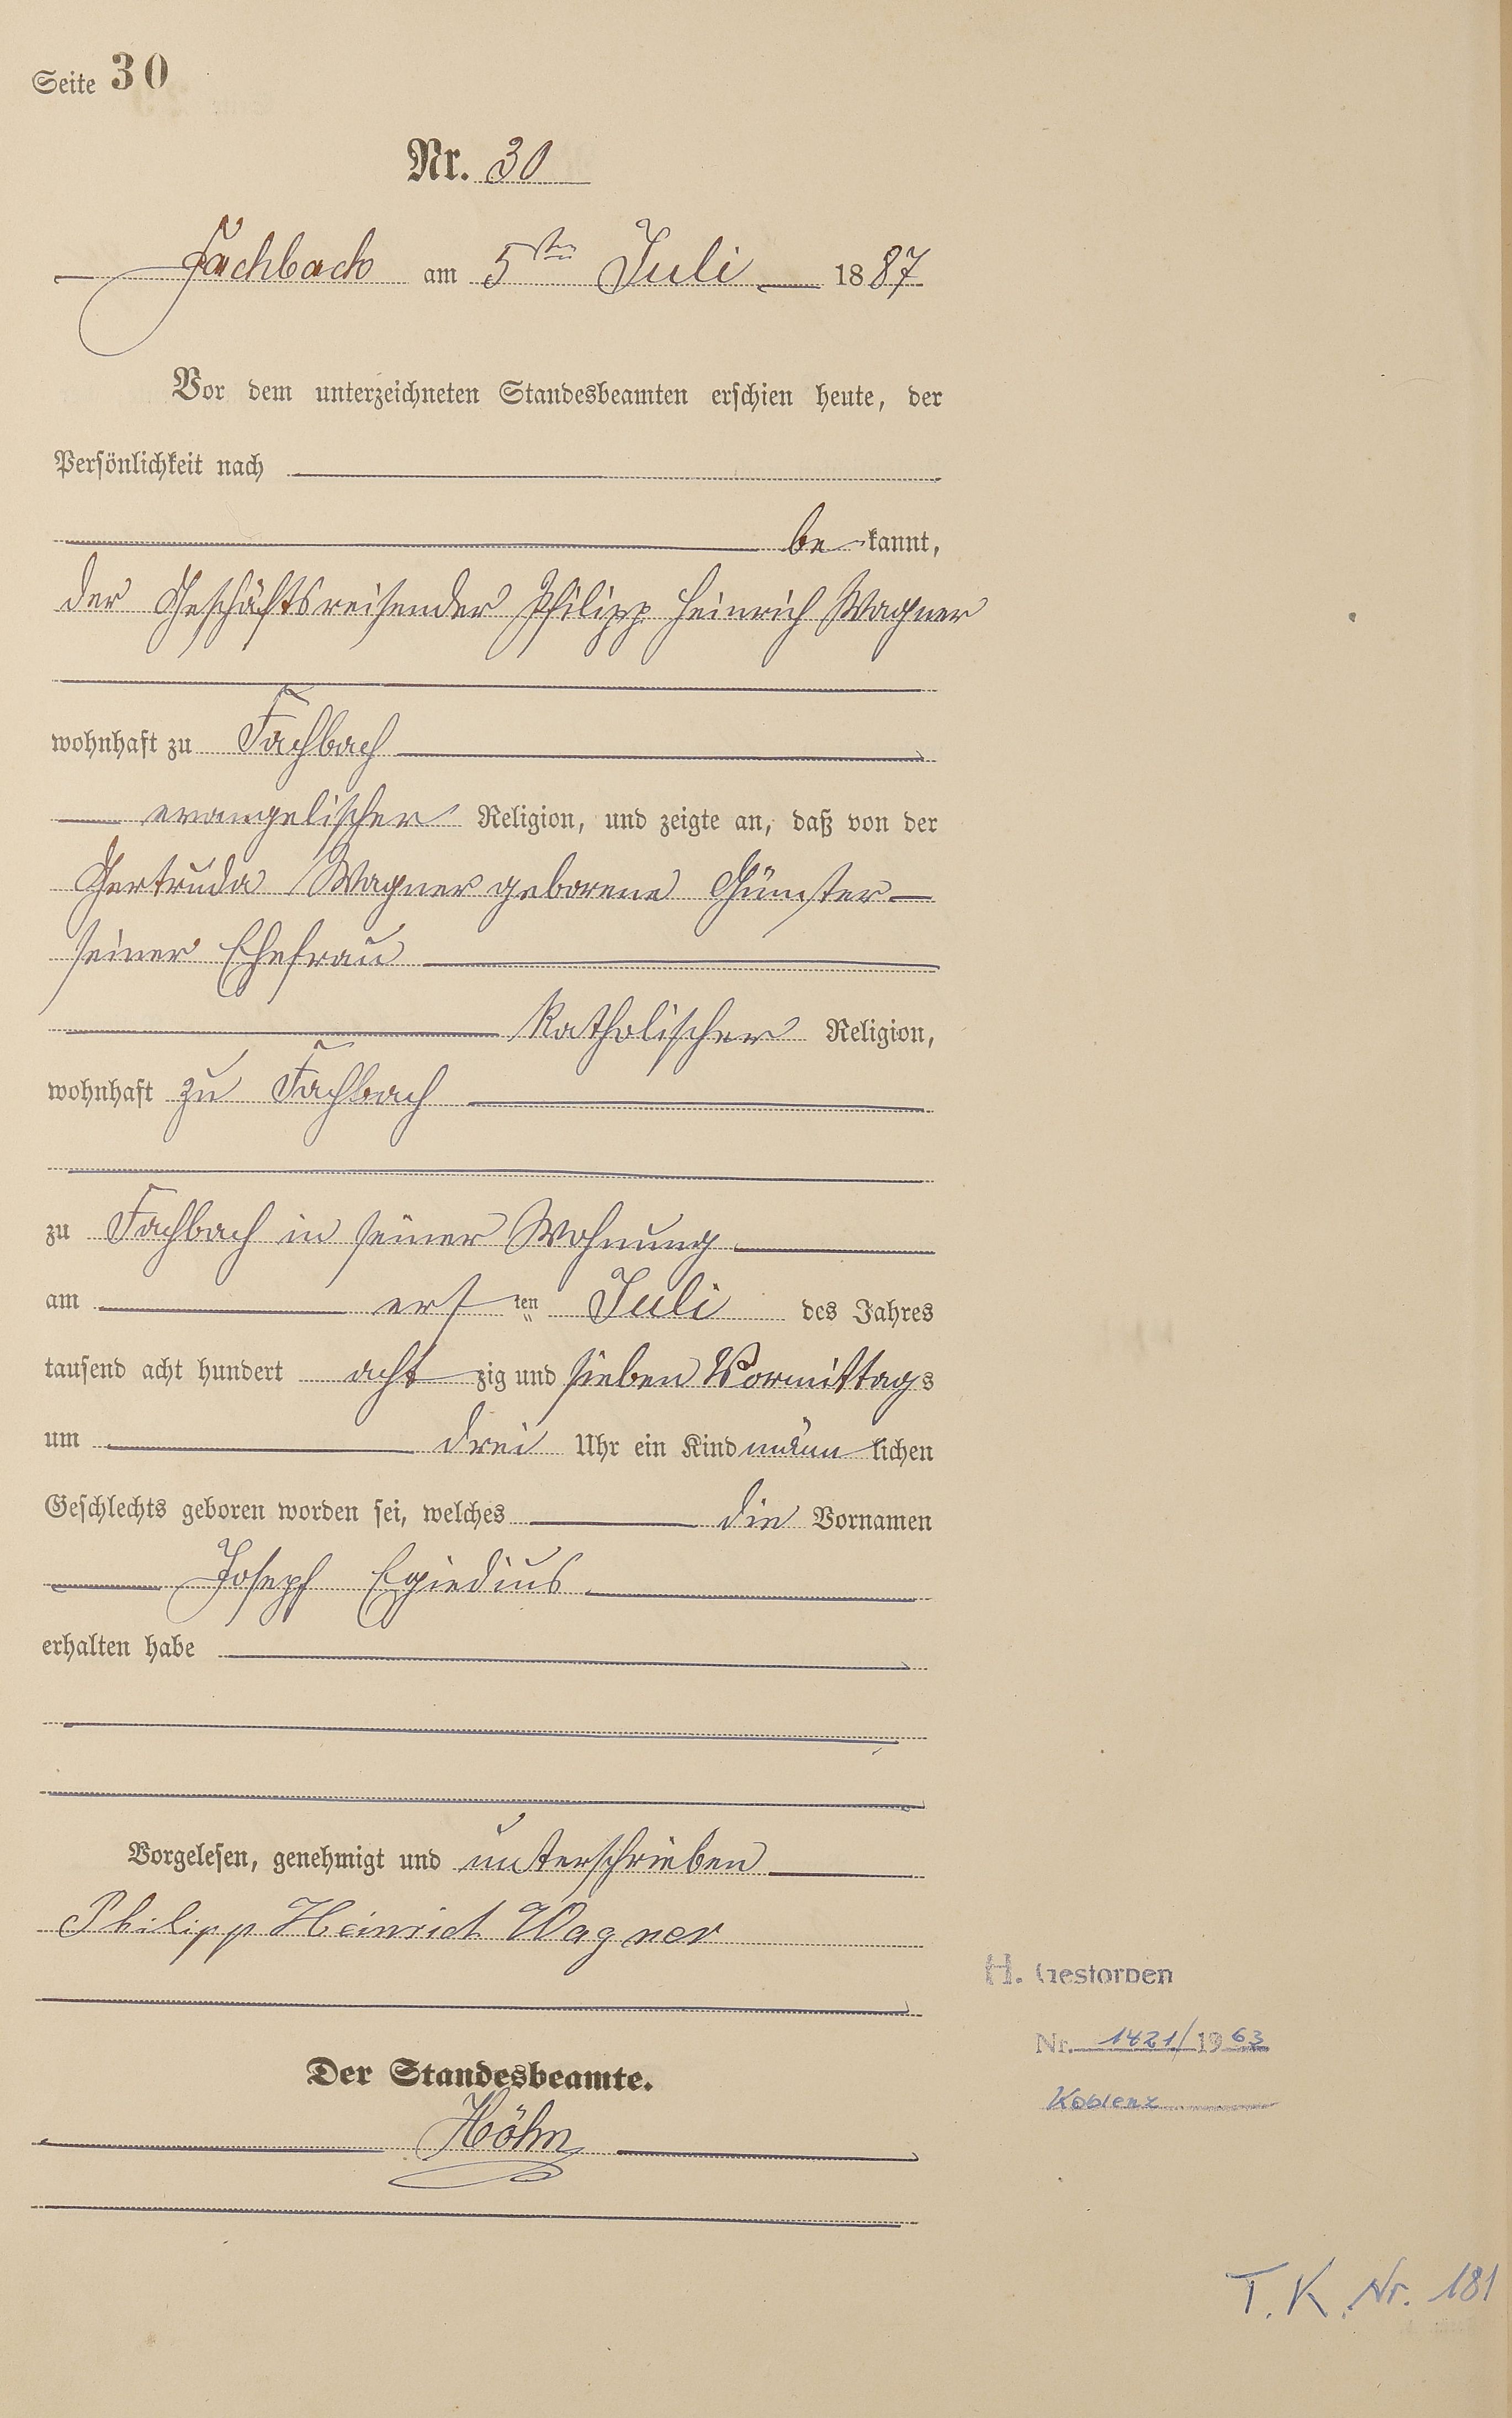 Seite 30
Nr. 30
Fachbach am 5ten Juli 1887
Vor dem unterzeichneten Standesbeamten erschien heute, der
Persönlichkeit nach
bekannt,
der Geschäftsreisender Philipp Heinrich Wagner
wohnhaft zu Fachbach
evangelischer Religion, und zeigte an, daß von der
Gertruda Wagner geborene Günster
seiner Ehefrau
katholischer Religion,
wohnhaft zu Fachbach
zu Fachbach in seiner Wohnung
am ersten Juli des Jahres
tausend acht hundert achtzig und sieben Vormittags
um drei Uhr ein Kind männlichen
Geschlechts geboren worden sei, welches die Vornamen
Joseph Egiedius
erhalten habe
Vorgelesen, genehmigt und unterschrieben
Philipp Heinrich Wagner
Der Standesbeamte.
Höhn
H. Gestorben
Nr. 1421/1963
Koblenz
T. K. Nr. 181